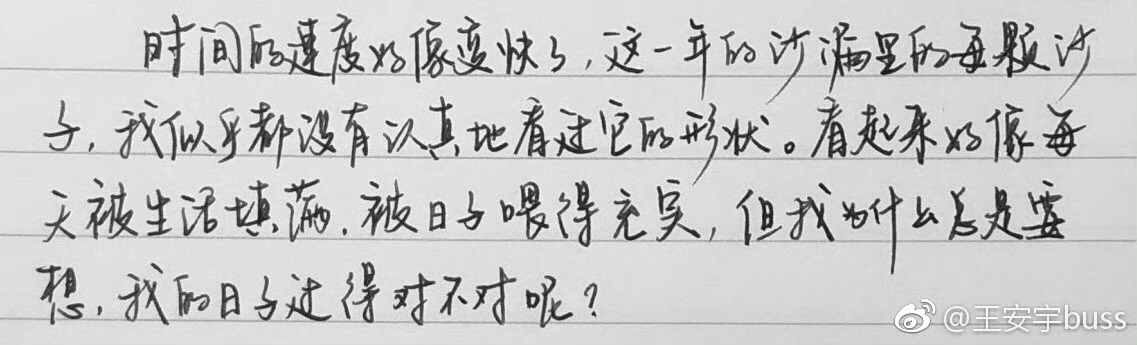 时间的速度好像变快了,这一年的沙漏里的每颗沙
子,我似乎都没有认真地看过它的形状。看起来好像每
天被生活填满,被日子喂得充实,但我为什么总是要
想,我的日子过得对不对呢?
@王安宇buss